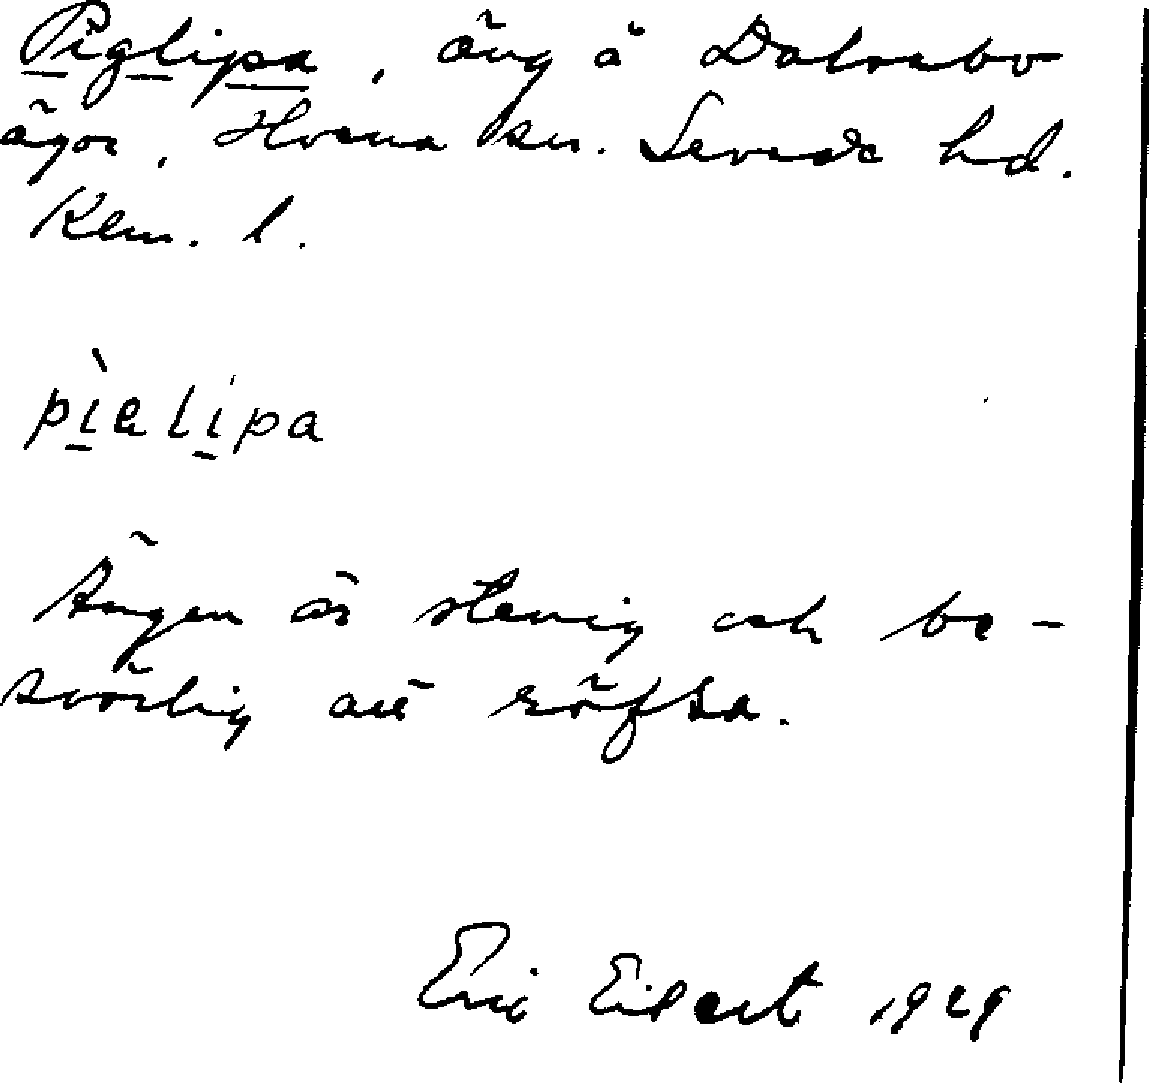 Piglipa, äng å Dalsebo
ägor, Horna sn. Sevede hd.
Klm. l.
pìalipa
Ängen är stenig och be-
svärlig att räfsa.
Eric Eilert 1929